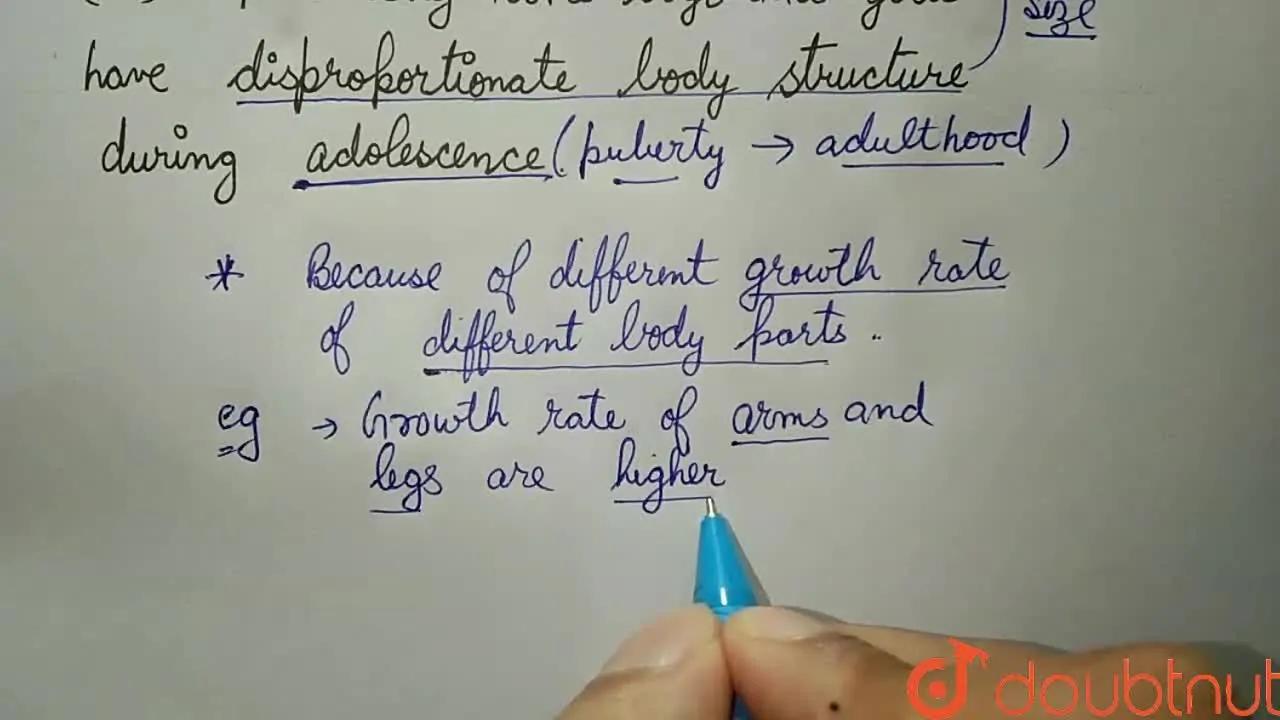 size
have disproportionate body structure
during adolescence (puberty → adulthood)
* Because of different growth rate
of different body parts.
eg → Growth rate of arms and
legs are higher
doubtnut